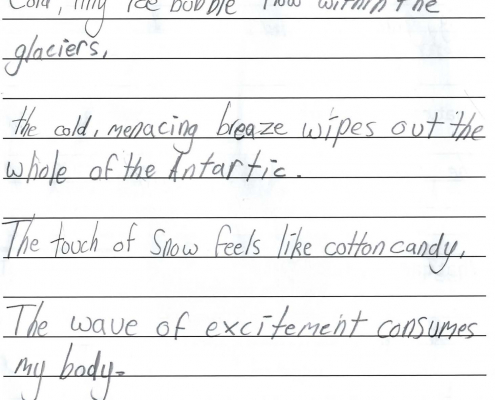 Cold, tiny ice bubble flow within the
glaciers,
the cold, menacing breaze wipes out the
whole of the Antartic.
The touch of Snow feels like cotton candy,
The wave of excitement consumes
my body.